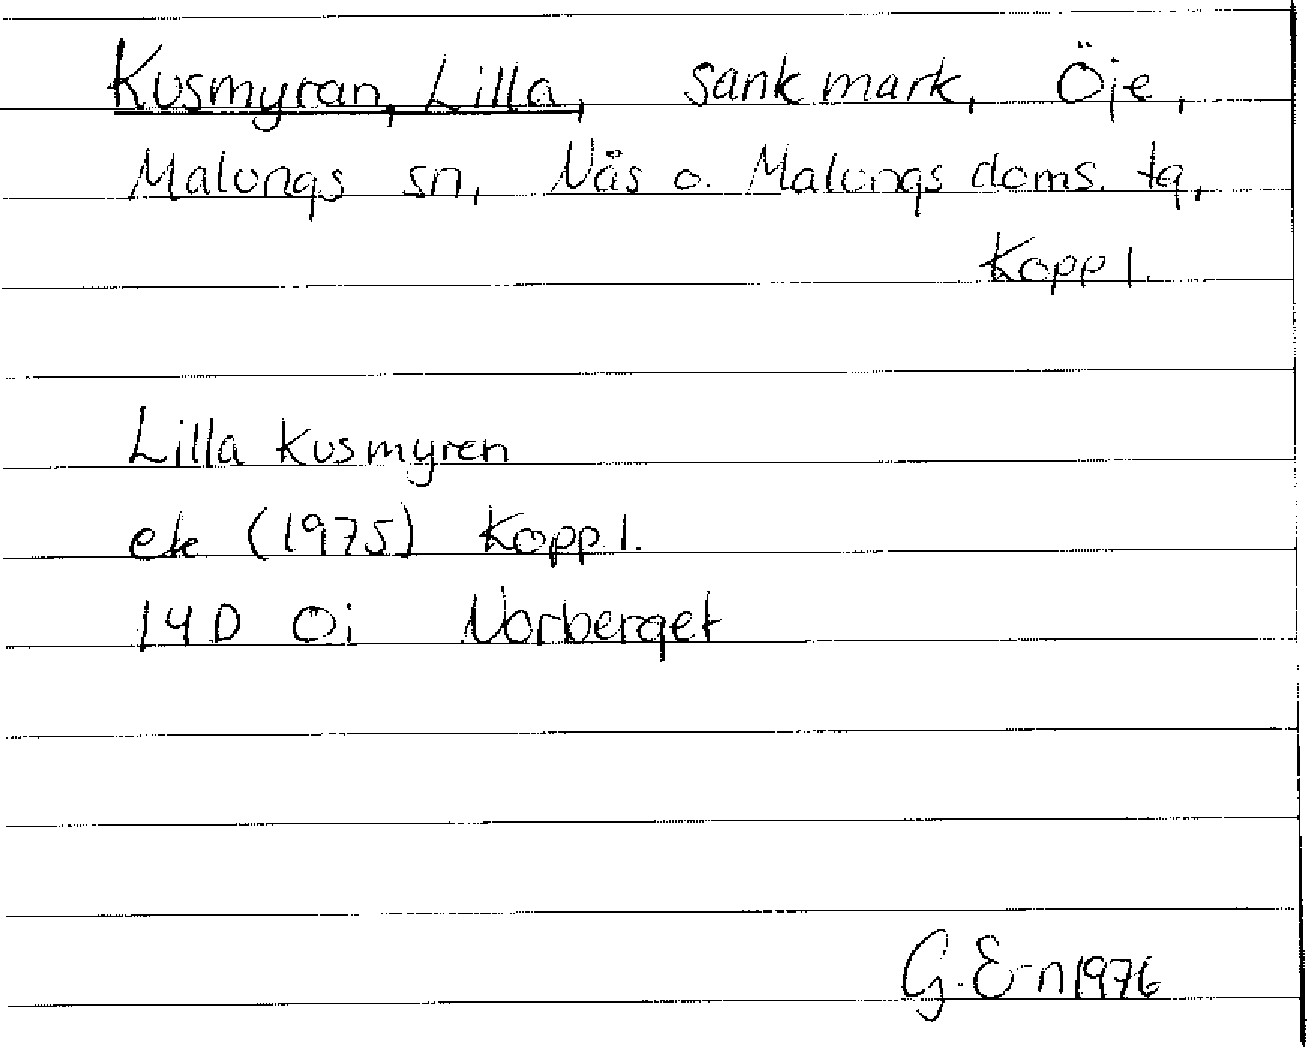 Kusmyran, Lilla, sank mark, Öje,
Malungs sn, Nås o. Malungs doms. tg,
Kopp l.
Lilla Kusmyren
ek (1975) Kopp l.
14D 0i Norberget
G. E-n 1976